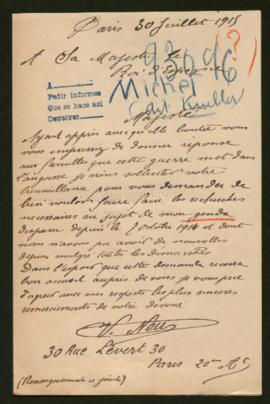 Paris 30 Juillet 1915
A Sa Majesté le
Roi d'Espagne
(?)
Michel
A
Pedir informes
Que se hace así
Devolver
Majesté
Ayant appris avec quelle bonté vous
vous empressez de donner réponse
aux familles que cette guerre met dans
l'angoisse je viens solliciter votre
bienveillance pour vous demander de
bien vouloir faire faire les recherches
nécessaires au sujet de mon gendre
disparu depuis le 7 Octobre 1914 et dont
nous n'avons pu avoir de nouvelles
depuis malgré toutes les démarches
Dans l'espoir que cette demande recevra
bon accueil auprès de vous je vous prie
d'agréer avec mes respects les plus sincères
remerciements de votre dévoué
30 Rue Levert 30
Paris 20me Ar
(Renseignements ci joints)